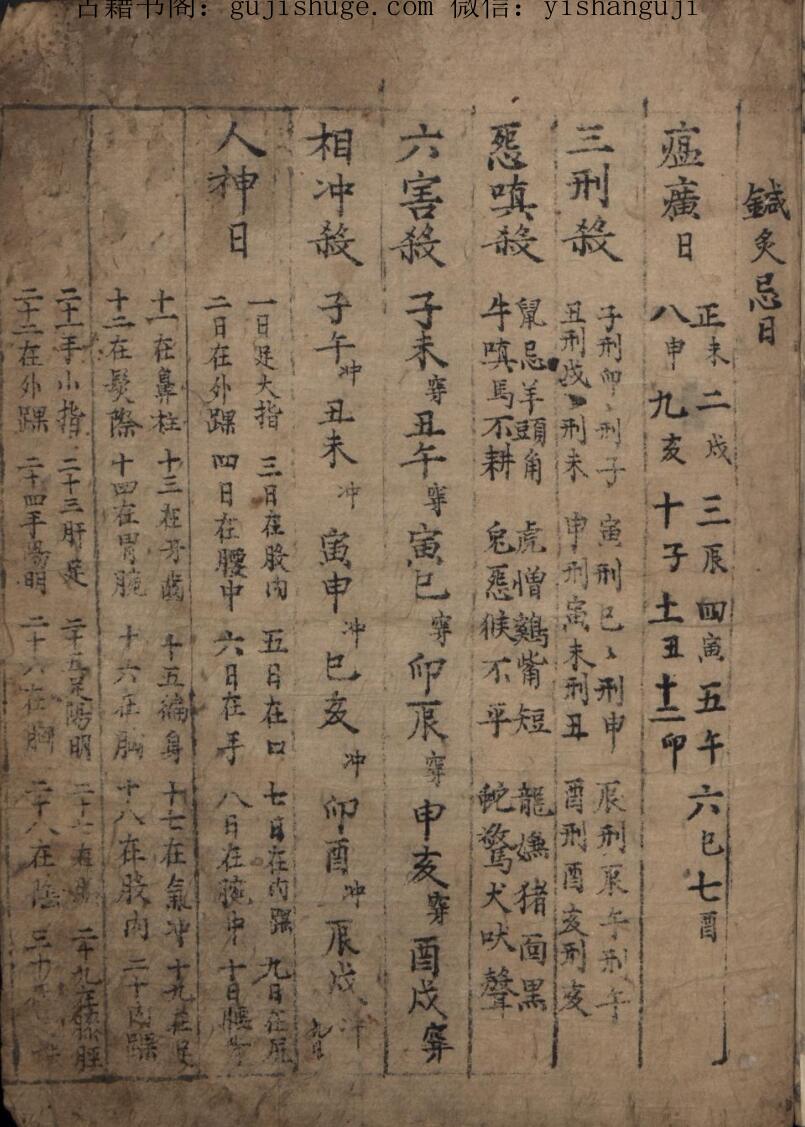 古籍书阁：gujishuge.com 微信：yishanguji
鍼灸忌日
瘟㾮日
正未 二戌 三辰 四寅 五午 六巳 七酉
八申 九亥 十子 十一丑 十二卯
三刑殺
子刑卯〻刑子 寅刑巳〻刑申 辰刑辰午刑午
丑刑戌〻刑未 申刑寅未刑丑 酉刑酉亥刑亥
惡嗔殺
鼠忌羊頭角 虎憎鷄觜短 龍嫌猪面黑
牛嗔馬不耕 兔惡猴不平 蛇驚犬吠聲
六害殺 子未穿 丑午穿 寅巳穿 卯辰穿 申亥穿 酉戌穿
相冲殺 子午冲 丑未冲 寅申冲 巳亥冲 卯酉冲 辰戌冲
人神日
一日足大指 三日在股內 五日在口 七日在內踝 九日在尻
二日在外踝 四日在腰中 六日在手 八日在腕中 十日腰
十一在鼻柱 十三在牙齒 十五徧身 十七在氣冲 十九在足
十二在髮際 十四在胃腕 十六在胸 十八在股內 二十內踝
二十一手小指 二十三肝足 二十五足陽明 二十七在 二十九在膝脛
二十二在外踝 二十四手陽明 二十六在胸 二十八在陰 三十